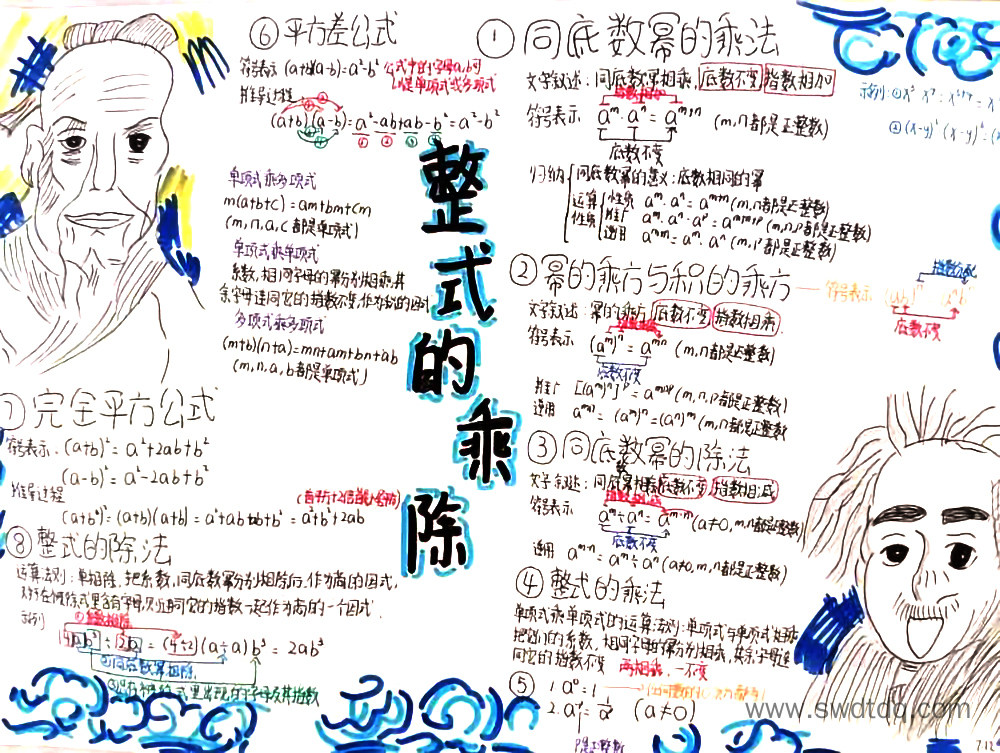 整式的乘除
⑥ 平方差公式
符号表示 (a+b)(a-b)=a²-b² 公式中的字母a,b可
以是单项式或多项式
推导过程
(a+b)(a-b)=a²-ab+ab-b²=a²-b²
单项式乘多项式
m(a+b+c)=am+bm+cm
(m,a,b,c都是单项式)
单项式乘单项式
系数,相同字母的幂分别相乘,其
余字母连同它的指数不变,作为积的因式
多项式乘多项式
(m+b)(n+a)=mn+am+bn+ab
(m,n,a,b都是单项式)
⑦ 完全平方公式
符号表示.(a+b)²=a²+2ab+b²
(a-b)²=a²-2ab+b²
推导过程
=(a+b)(a+b)=a²+ab+ab+b²=a²+b²+2ab
⑧ 整式的除法
运算法则:单相除,把系数,同底数幂分别相除后,作为商的因式,
一起作为商的一个因式.
示例
①系数相除
=(4÷2)(a÷a)b³=2ab³
②同底数幂相除
① 同底数幂的乘法
文字叙述:同底数幂相乘,底数不变,指数相加
指数相加
符号表示 aᵐ·aⁿ=aᵐ⁺ⁿ (m,n都是正整数)
底数不变
归纳
同底数幂的意义:底数相同的幂
运算性质
性质 aᵐ·aⁿ=aᵐ⁺ⁿ(m,n都是正整数)
推广 aᵐ·aⁿ·aᵖ=aᵐ⁺ⁿ⁺ᵖ(m,n,p都是正整数)
逆用 aᵐ⁺ⁿ=aᵐ·aⁿ
示例:①
②(x-y)²(x-y)³=
② 幂的乘方与积的乘方
符号表示 (ab)ⁿ=aⁿbⁿ
底数不变
文字叙述:幂的乘方,底数不变,指数相乘
符号表示 (aᵐ)ⁿ=aᵐⁿ (m,n都是正整数)
底数不变
推广 [(aᵐ)ⁿ]ᵖ=aᵐⁿᵖ(m,n,p都是正整数)
逆用 aᵐⁿ=(aᵐ)ⁿ=(aⁿ)ᵐ(m,n都是正整数)
③ 同底数幂的除法
文字叙述:同底数幂相除,底数不变,指数相减
指数相减
符号表示 aᵐ÷aⁿ=aᵐ⁻ⁿ(a≠0,m,n都是正整数)
底数不变
逆用 aᵐ⁻ⁿ=aᵐ÷aⁿ(a≠0,m,n都是正整数)
④ 整式的乘法
单项式乘单项式的运算法则:单项式与单项式相乘
把它们的系数,相同字母的幂分别相乘,其余字母连
同它的指数不变 两相乘,一不变
⑤ 1.a⁰=1
(a≠0)
P是正整数
www.swdtdq.com